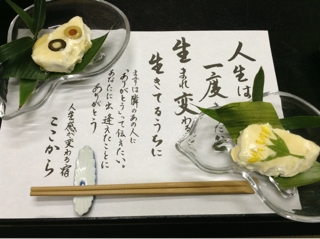 人生は
一度
生まれ変わ
生きてるうちに
まずは隣のあの人に
ありがとうって伝えたい。
あなたに出逢えたことに
ありがとう
人生感が変わる宿
ここから